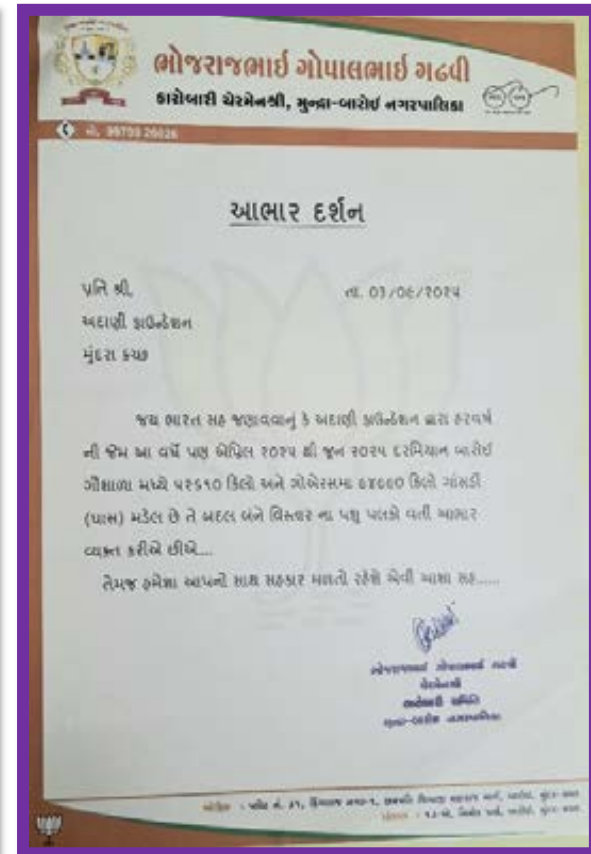 ભોજરાજભાઈ ગોપાલભાઈ ગઢવી
કારોબારી ચેરમેનશ્રી, મુન્દ્રા-બારોઈ નગરપાલિકા
આભાર દર્શન
પ્રતિ શ્રી, તા. 03/0૯/૨૦૨૫
અદાણી ફાઉન્ડેશન
મુંદરા કચ્છ
જય ભારત સહ જણાવવાનું કે અદાણી ફાઉન્ડેશન દ્વારા હરવર્ષ
ની જેમ આ વર્ષે પણ એપ્રિલ ૨૦૨૫ થી જુન ૨૦૨૫ દરમિયાન બારોઈ
ગૌશાળા મધ્યે કિલો અને કિલો ગાંસડી
(ઘાસ) મડેલ છે તે બદલ બંને વિસ્તાર ના પશુ પલકો વતી આભાર
વ્યક્ત કરીએ છીએ...
તેમજ હમેશા આપનો સાથ સહકાર મળતો રહેશે એવી આશા સહ......
ભોજરાજભાઈ ગોપાલભાઈ ગઢવી
ચેરમેનશ્રી
કારોબારી સમિતિ
મુન્દ્રા-બારોઈ નગરપાલિકા